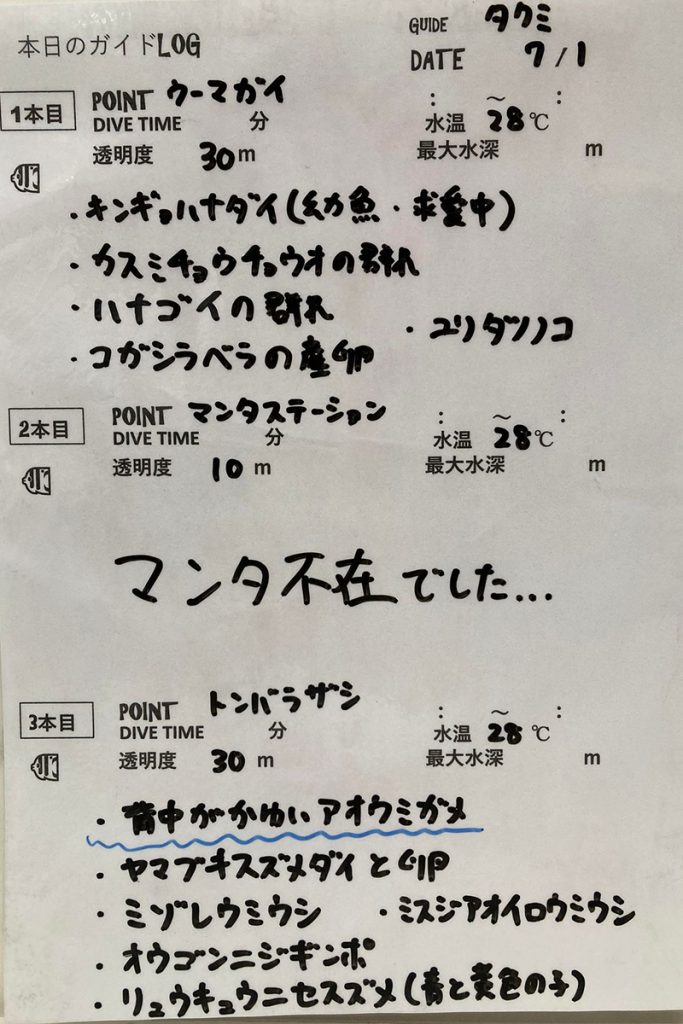 本日のガイドLOG GUIDE タクミ
DATE 7/1
1本目 POINT ウーマガイ : ～ :
DIVE TIME 分 水温 28℃
透明度 30m 最大水深 m
・キンギョハナダイ(幼魚・求愛中)
・カスミチョウチョウオの群れ
・ハナゴイの群れ
・ユリタツノコ
・コガシラベラの産卵
2本目 POINT マンタステーション : ～ :
DIVE TIME 分 水温 28℃
透明度 10m 最大水深 m
マンタ不在でした...
3本目 POINT トンバラザシ : ～ :
DIVE TIME 分 水温 28℃
透明度 30m 最大水深 m
・背中がかゆいアオウミガメ
・ヤマブキスズメダイと卵
・ミゾレウミウシ ・ミスジアオイロウミウシ
・オウゴンニジギンポ
・リュウキュウニセスズメ(青と黄色の子)